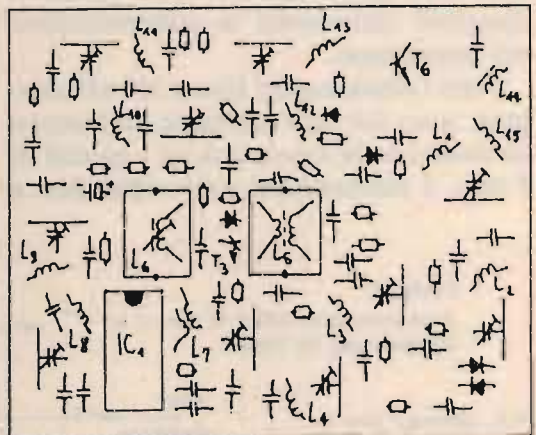 L11
L13
T6
L14
L10
L12
L1
L15
L6
L5
L9
T3
L2
L8
IC1
L7
L3
L4